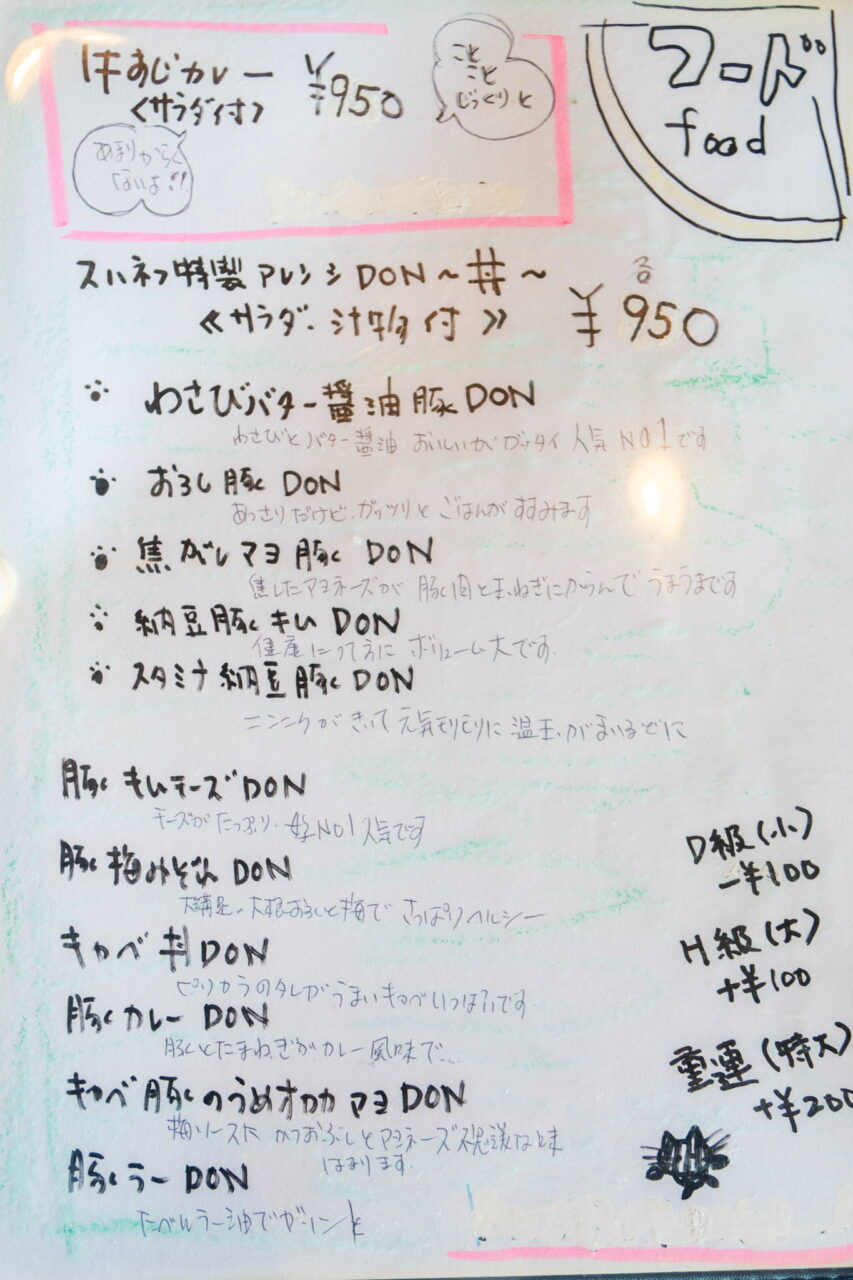 フード
food
牛すじカレー ¥950
<サラダ付>
ことことじっくりと
あまりからくないよ!!
スハネフ特製アレンジDON～丼～
≪サラダ・汁物付≫ 各 ¥950
わさびバター醤油豚DON
わさびとバター醤油 おいしいがガッタイ 人気NO1です
おろし豚DON
あっさりだけど、ガッツリと ごはんがすすみます
焦がしマヨ豚 DON
焦したマヨネーズが 豚肉と玉ねぎにからんで うまうまです
納豆豚キム DON
ボリューム大です
スタミナ納豆豚DON
ニンニクがきいて 元気モリモリに 温玉が
豚キムチーズDON
チーズがたっぷり 人気です
豚梅みぞれDON
大満足。大根おろしと梅で さっぱりヘルシー
キャベ丼DON
ピリカラのタレがうまいキャベいっぱいです
豚カレーDON
豚とたまねぎがカレー風味で…
キャベ豚のうめオカカマヨDON
梅ソースに かつおぶしとマヨネーズ 不思議な味
はまります。
豚ラーDON
たべるラー油でガツンと
D級(小)
-¥100
H級(大)
+¥100
重連(特大)
+¥200